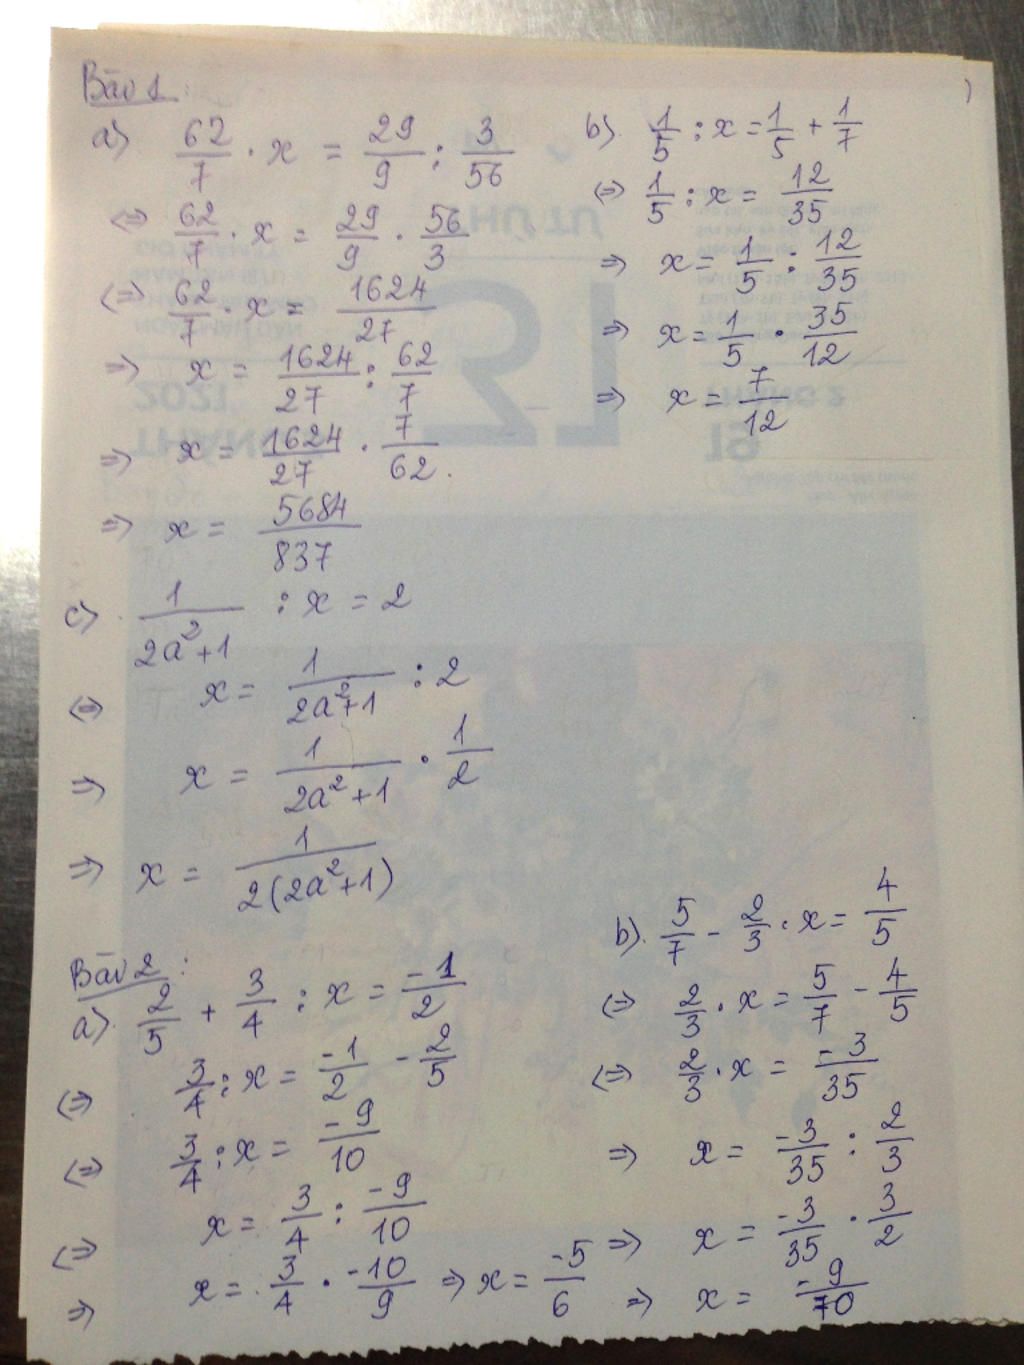 Bài 1:
a) 62/7 . x = 29/9 : 3/56
<=> 62/7 . x = 29/9 . 56/3
<=> 62/7 . x = 1624/27
=> x = 1624/27 : 62/7
=> x = 1624/27 . 7/62.
=> x = 5684/837
b). 1/5 : x = 1/5 + 1/7
<=> 1/5 : x = 12/35
=> x = 1/5 : 12/35
=> x = 1/5 . 35/12
=> x = 7/12
c) 1/(2a²+1) : x = 2
<=> x = 1/(2a²+1) : 2
=> x = 1/(2a²+1) . 1/2
=> x = 1/(2(2a²+1))
Bài 2:
a). 2/5 + 3/4 : x = -1/2
<=> 3/4 : x = -1/2 - 2/5
<=> 3/4 : x = -9/10
<=> x = 3/4 : -9/10
=> x = 3/4 . -10/9 => x = -5/6
b). 5/7 - 2/3 . x = 4/5
<=> 2/3 . x = 5/7 - 4/5
<=> 2/3 . x = -3/35
=> x = -3/35 : 2/3
=> x = -3/35 . 3/2
=> x = -9/70